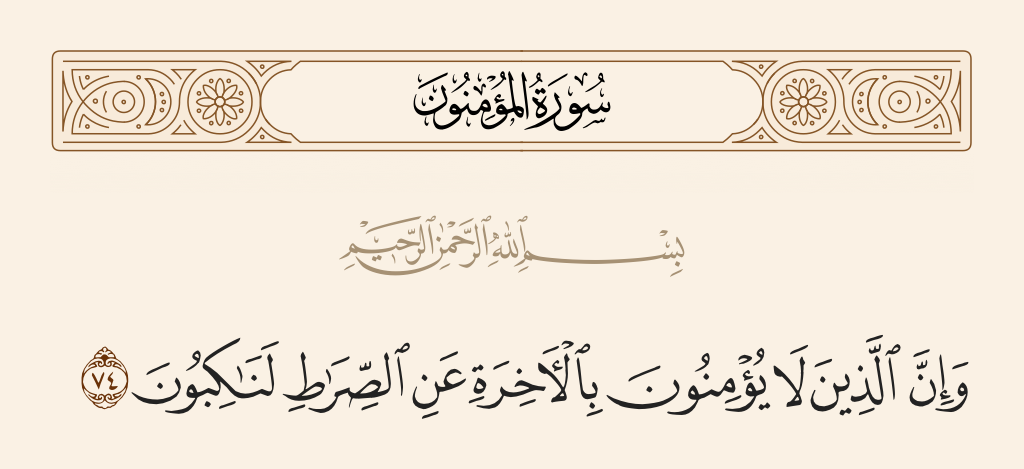 سُورَةُ المُؤْمِنُونَ
بِسْمِ ٱللَّهِ ٱلرَّحْمَٰنِ ٱلرَّحِيمِ
وَإِنَّ ٱلَّذِينَ لَا يُؤْمِنُونَ بِٱلْأَخِرَةِ عَنِ ٱلصِّرَٰطِ لَنَٰكِبُونَ ٧٤